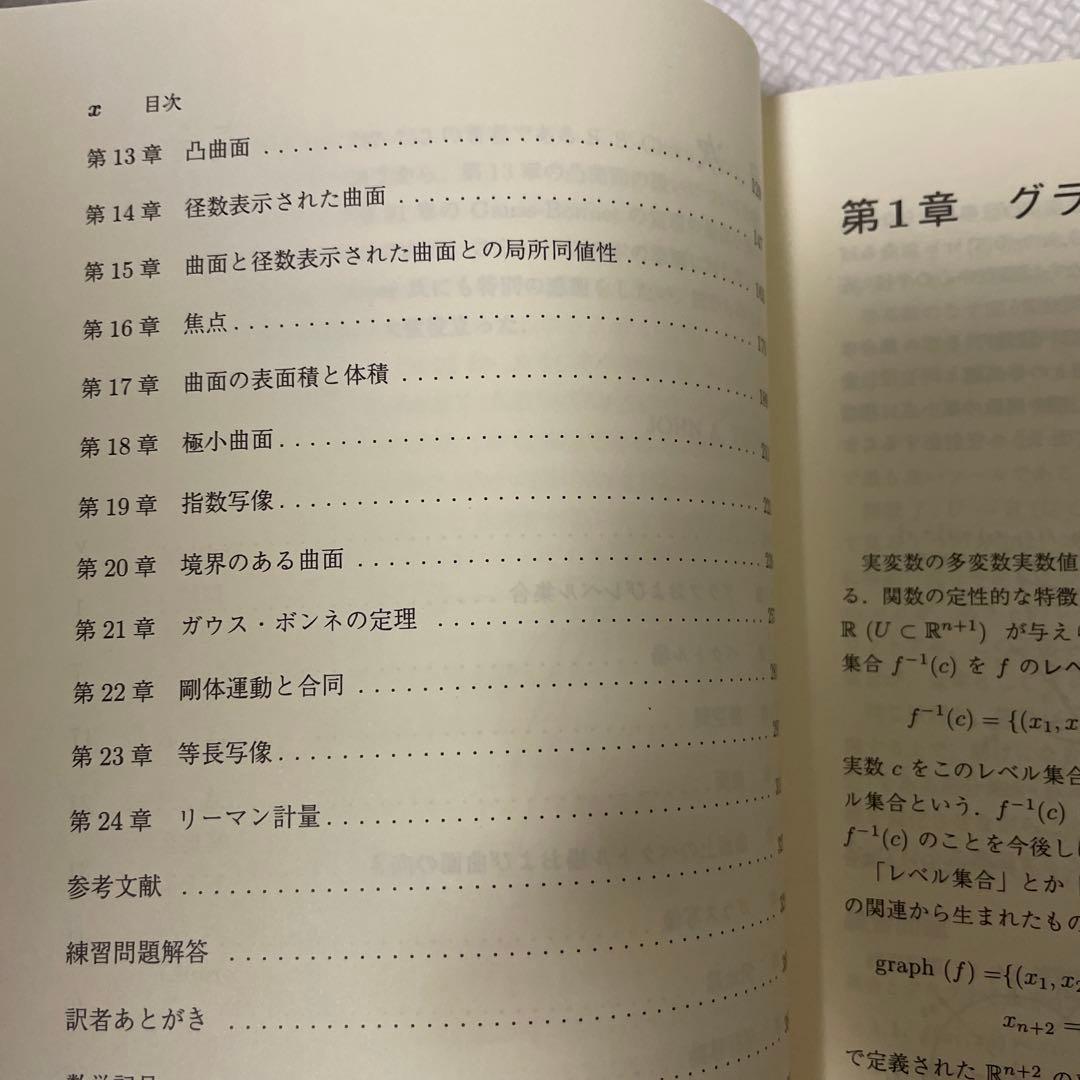 x 目次
第13章 凸曲面
第14章 径数表示された曲面
第15章 曲面と径数表示された曲面との局所同値性
第16章 焦点
第17章 曲面の表面積と体積
第18章 極小曲面
第19章 指数写像
第20章 境界のある曲面
第21章 ガウス・ボンネの定理
第22章 剛体運動と合同
第23章 等長写像
第24章 リーマン計量
参考文献
練習問題解答
訳者あとがき
第1章 グラ
実変数の多変数実数値
る．関数の定性的な特徴
ℝ (U ⊂ ℝⁿ⁺¹) が与え
集合 f⁻¹(c) を f のレベ
f⁻¹(c) = {(x₁, x
実数 c をこのレベル集合
ル集合という．f⁻¹(c)
f⁻¹(c) のことを今後し
「レベル集合」とか
の関連から生まれたもの
graph (f) ={(x₁, x₂
xₙ₊₂ =
で定義された ℝⁿ⁺² の